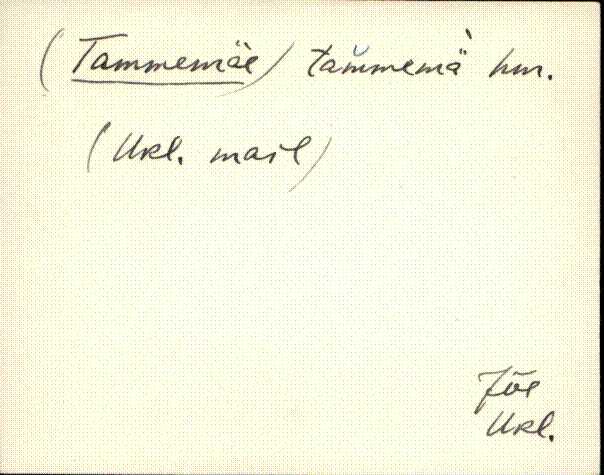 (Tammemäe) tămmemä̀ hm.
(Ukl. mail)
Jõe
Ukl.